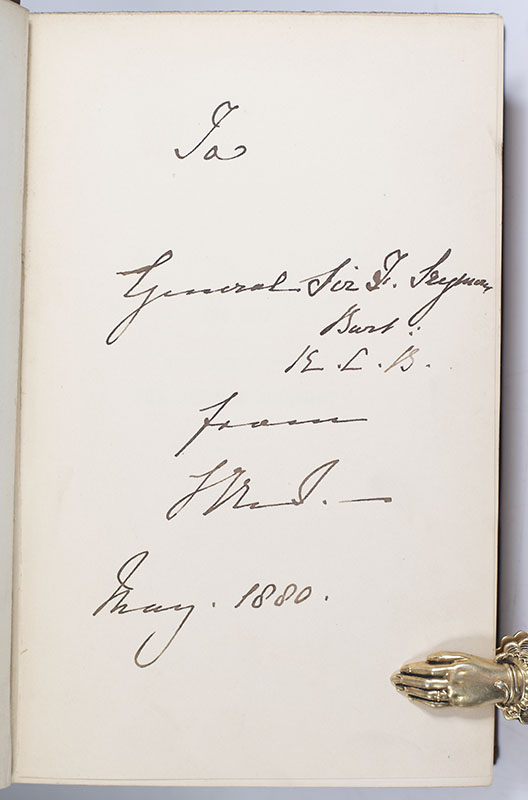 To
General Sir F. Seymour
Bart:
K.C.B.
from
May. 1880.